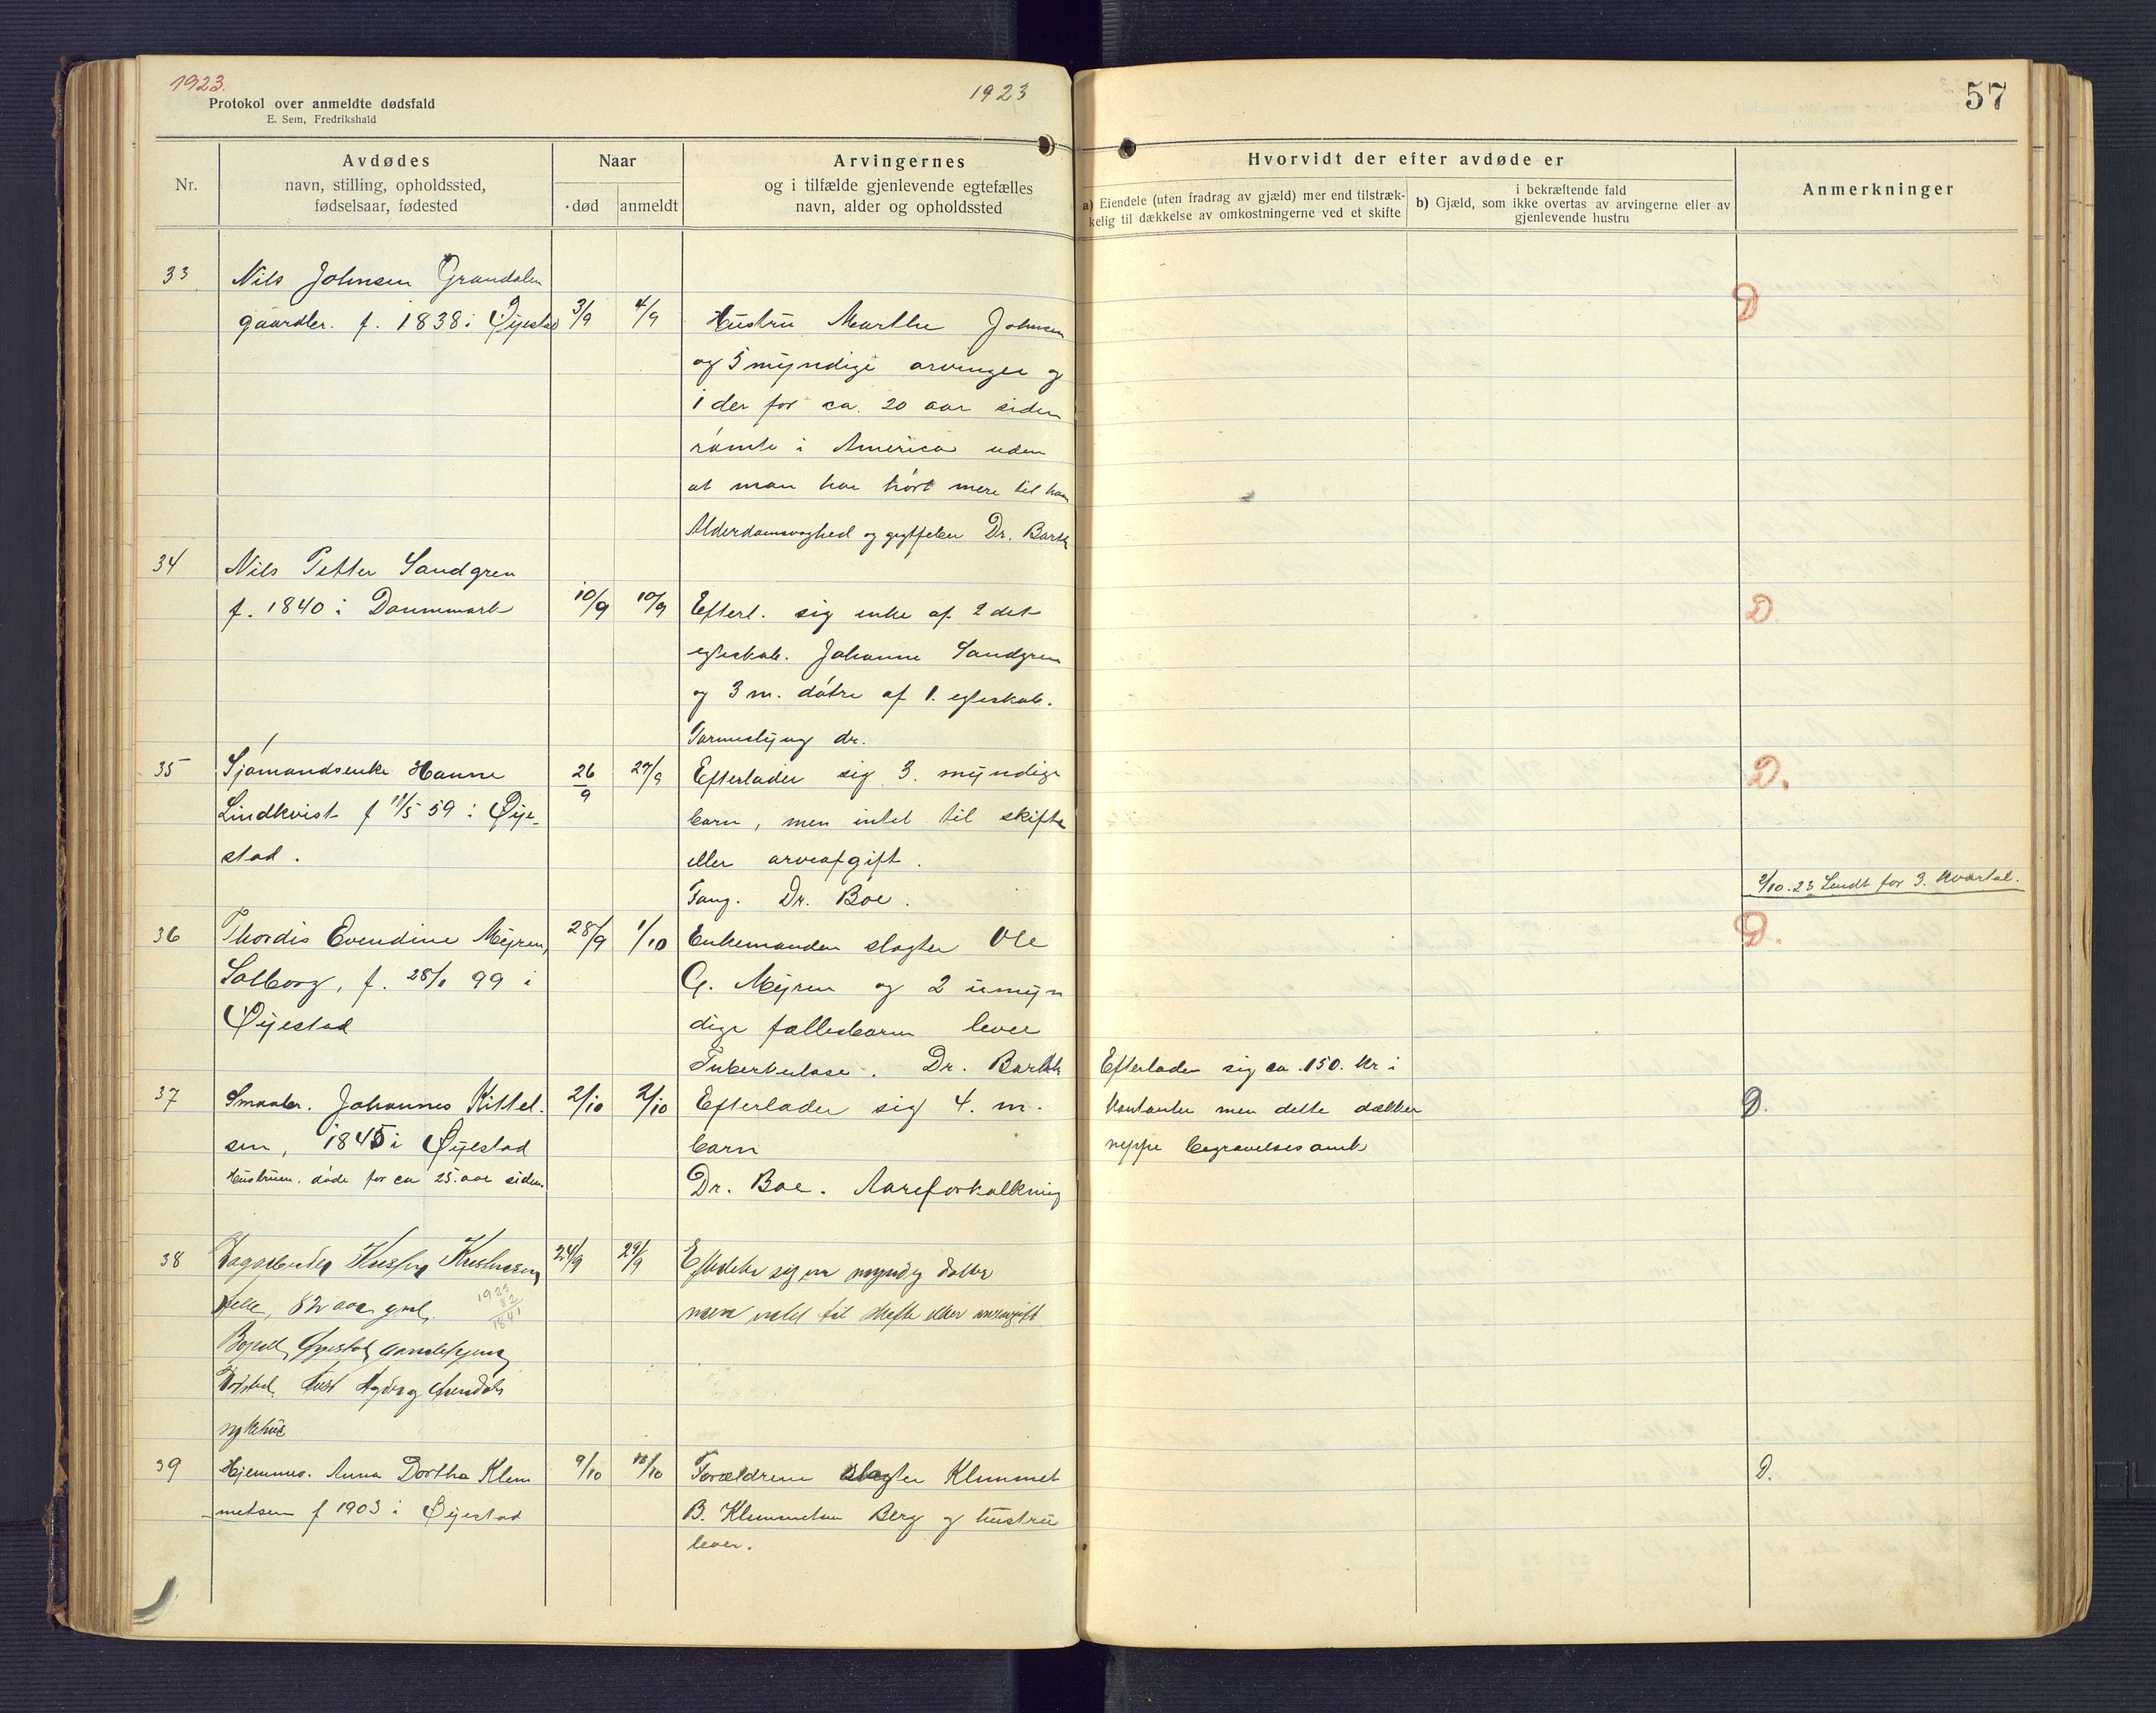 1923.
Protokol over anmeldte dødsfald
E. Sem, Fredrikshald
1923
57
Nr.
Avdødes
navn, stilling, opholdssted,
fødselsaar, fødested
Naar
død
anmeldt
Arvingernes
og i tilfælde gjenlevende egtefælles
navn, alder og opholdssted
Hvorvidt der efter avdøde er
a) Eiendele (uten fradrag av gjæld) mer end tilstræk-
kelig til dækkelse av omkostningerne ved et skifte
i bekræftende fald
b) Gjæld, som ikke overtas av arvingerne eller av
gjenlevende hustru
Anmerkninger
33
Nils Johnsen Grandalen
gaardbr. f. 1838 i Øyestad
3/9
4/9
Hustru Marthe Johnsen
og 5 myndige arvinger og
1 der for ca. 20 aar siden
rømte i America uden
at man har hørt mere til ham
Alderdomssvaghed og Dr. Barth
D
34
Nils Petter Sandgren
f. 1840 i Dannmark
10/9
10/9
Efterl. sig enke af 2det
egteskab. Johanne Sandgren
og 3 m. døtre af 1. egteskab.
dr.
D.
35
Sjømandsenke Hanne
Lindkvist f 11/5 59 i Øye-
stad.
26/9
27/9
Efterlader sig 3. myndige
barn, men intet til skifte
eller arveafgift.
Tang. Dr. Boe.
D.
2/10.23 Sendt for 3. kvartal.
36
Thordis Evendine Myren,
Solborg, f. 28/1 99 i
Øyestad
28/9
1/10
Enkemanden slagter Ole
G. Myren og 2 umyn
dige fællesbarn lever
Tuberkulose. Dr. Barth
D.
37
Smaabr. Johannes Kittel.
sen, 1845 i Øyestad
Hustruen. døde for ca 25. aar siden.
2/10
2/10
Efterlader sig 4. m.
barn
Dr. Boe. Aareforkalkning
Efterlader sig ca. 150. kr i
kontanter men dette dækker
neppe begravelsesomk
D.
38
24/9
29/9
82 aar gml.
1923
82
1841
Bopæl, Øyestad
sykehus
Efterlader sig en myndig datter
men intet til skifte eller arveavgift
39
Hjemmev. Anna Dorthea Klem
metsen f 1903 i Øyestad
9/10
10/10
Forældrene slagter Klemmet
B. Klemmetsen Berg og hustru
lever.
D.